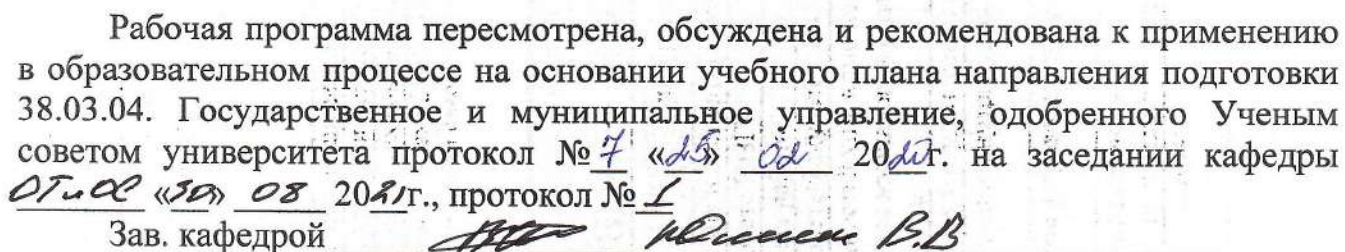 Рабочая программа пересмотрена, обсуждена и рекомендована к применению
в образовательном процессе на основании учебного плана направления подготовки
38.03.04. Государственное и муниципальное управление, одобренного Ученым
советом университета протокол № 7 «25» 02 2020г. на заседании кафедры
ОТиОС «30» 08 2021г., протокол № 1
Зав. кафедрой В.В